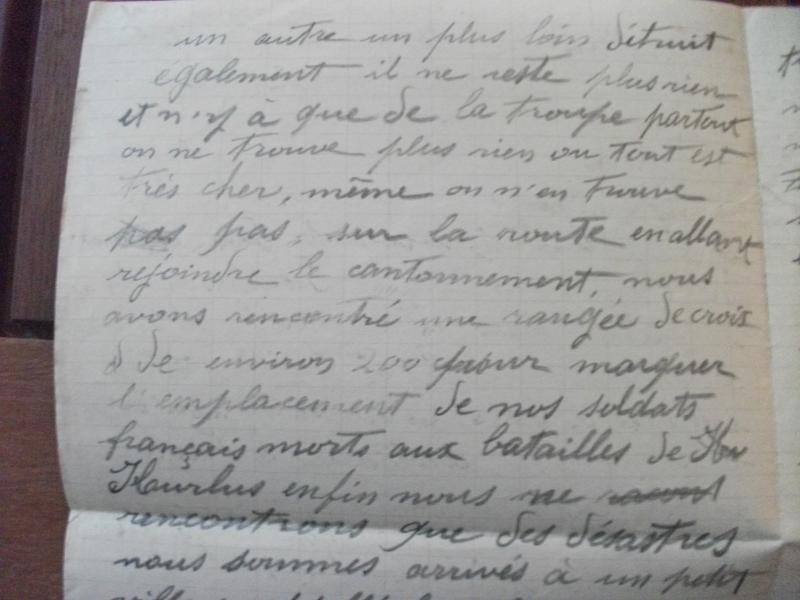 un autre un plus loin détruit
également il ne reste plus rien
et n'y à que de la troupe partout
on ne trouve plus rien ou tout est
très cher, même on n'en trouve
pas pas, sur la route en allant
rejoindre le cantonnement, nous
avons rencontré une rangée de croix
de environ 200 pour marquer
l'emplacement de nos soldats
français morts aux batailles de
Hurlus enfin nous ne
rencontrons que des désastres
nous sommes arrivés à un petit